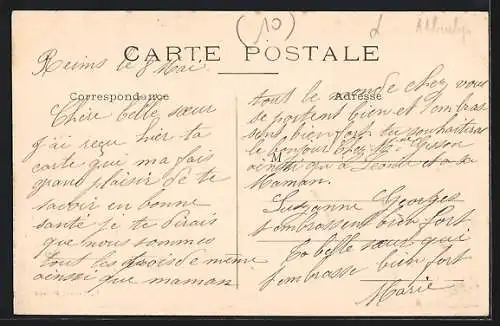 (10)
CARTE POSTALE
Reims le 8 Mai
Correspondance
Chère belle sœur
j'ai reçu hier ta
carte que ma fais
grand plaisir de te
savoir en bonne
santé je te dirais
que nous sommes
tous les trois de même
ainsi que maman
Adresse
tout le monde chez vous
se portent bien et t'embras
sent bien fort tu souhaiteras
le bonjour chez Mme
M
ainsi qu'a Leonie et a
Maman.
Suzanne Georges
t'embrassent bien fort
Ta belle sœur qui
t'embrasse bien fort
Marie